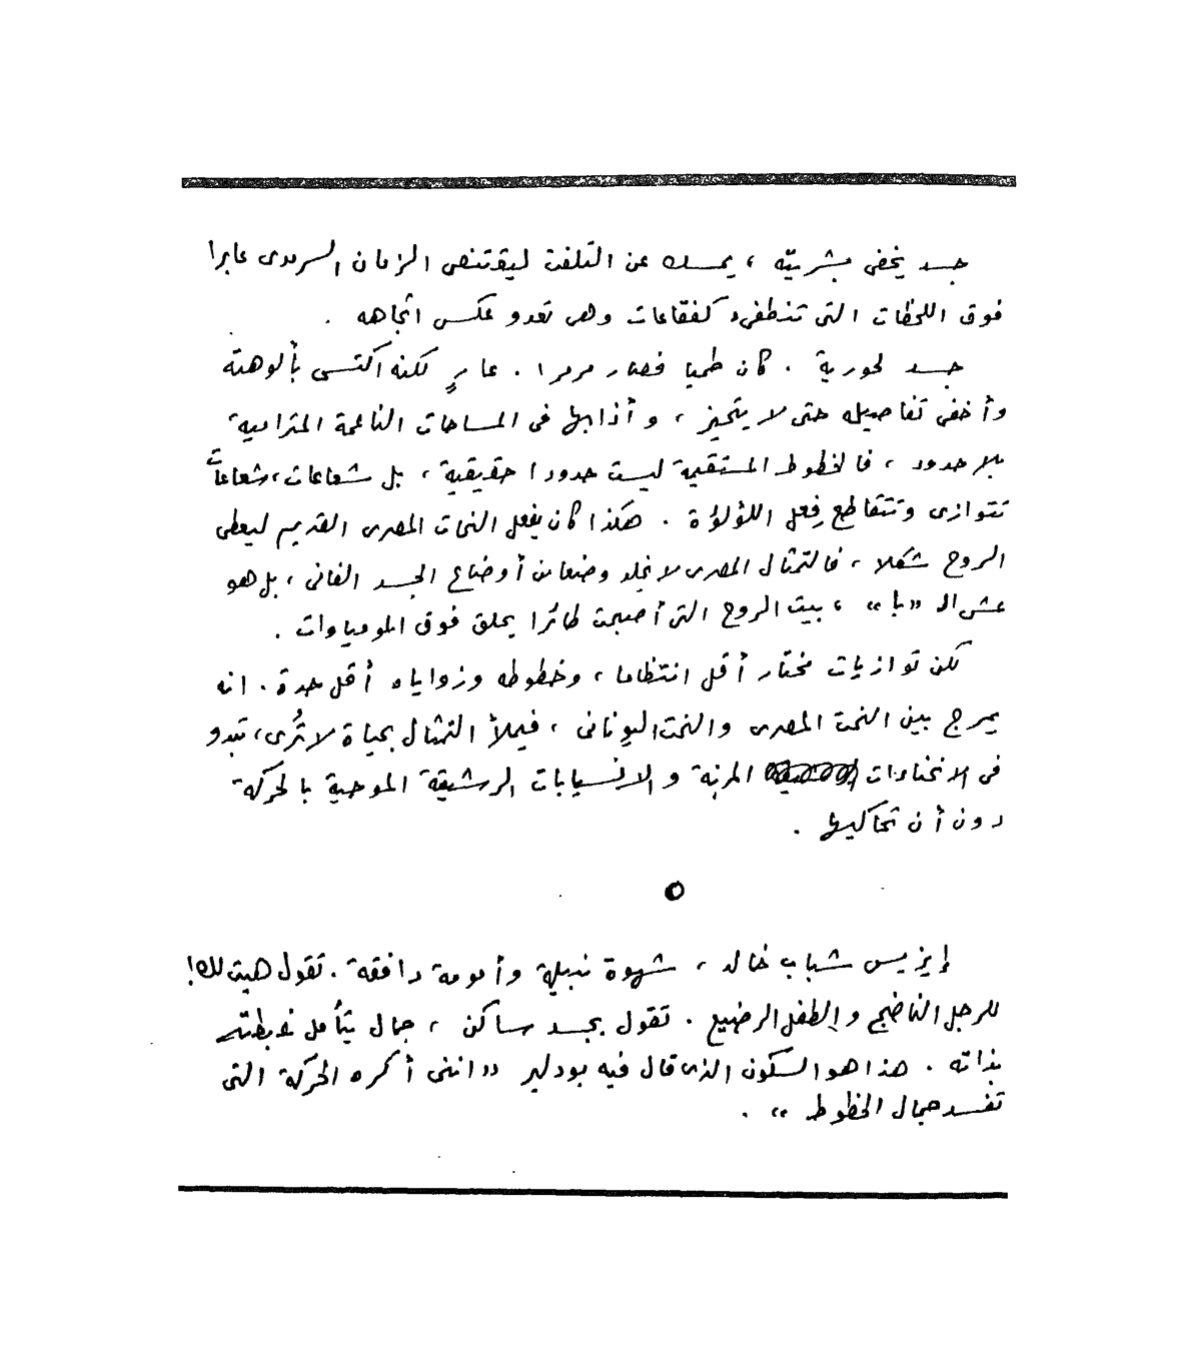 جسد يخفى بشريّته ، يمسك عن التلفت ليقتنص الزمان السرمدى عابرا
فوق اللحظات التى تنطفىء كفقاعات وهى تعدو عكس اتجاهه .
جسد لحورية . كان طميا فصار مرمرا . عارٍ لكنه اكتسى بألوهته
وأخفى تفاصيله حتى لا يتميز ، وأذابها فى المساحات الناعمة المترامية
بلا حدود ، فالخطوط المستقيمة ليست حدودا حقيقية ، بل شعاعات ، شعاعات
تتوازى وتتقاطع فِعل اللؤلؤة . هكذا كان يفعل النحات المصرى القديم ليعطى
الروح شكلا ، فالتمثال المصرى لا يخلد وضعا من أوضاع الجسد الفانى ، بل هو
عش الـ «با» ، بيت الروح التى أصبحت طائرا يحلق فوق المومياوات .
لكن توازيات مختار أقل انتظاما ، وخطوطه وزواياه أقل حدة . انه
يمرج بين النحت المصرى والنحت اليونانى ، فيملأ التمثال بحياة لا تُرى ، تبدو
فى الانحناءات المرنة والانسيابات الرشيقة الموحية بالحركة
دون أن تحاكيها .
إيزيس شباب خالد ، شهوة نبيلة وأمومة دافقة . تقول هيت لك !
للرجل الناضج والطفل الرضيع . تقول بجسد ساكن ، جمال يتأمل
بذاته . هذا هو السكون الذى قال فيه بودلير «اننى أكره الحركة التى
تفسد جمال الخطوط» .